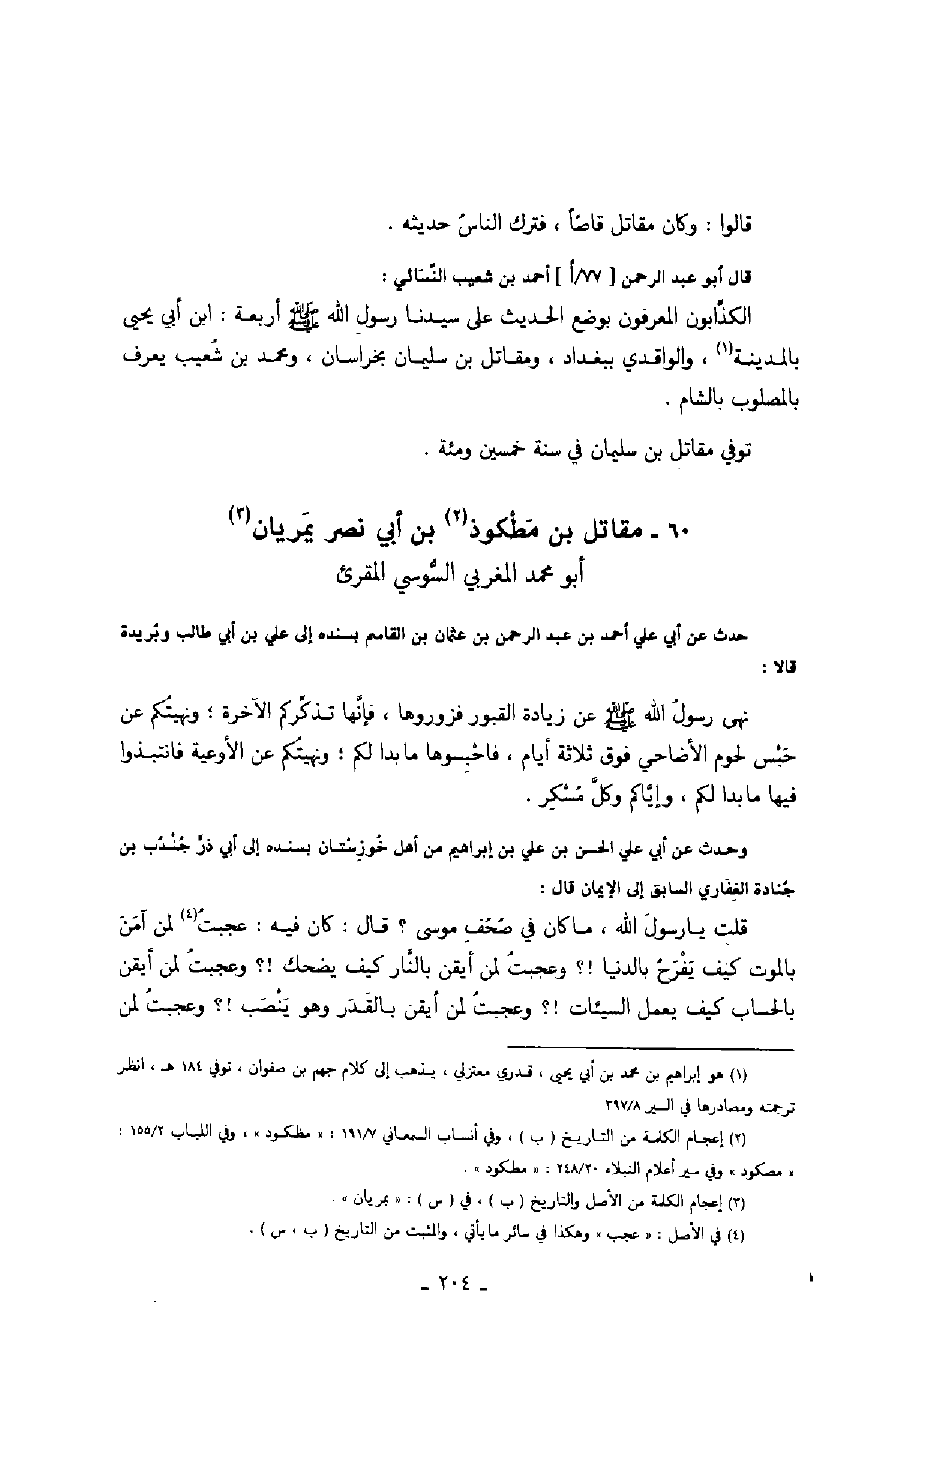 قالوا : وكان مقاتل قاصّاً ، فترك الناسُ حديثه .
قال أبو عبد الرحمن [ ٧٧/أ ] أحمد بن شعيب النَّسائي :
الكذَّابون المعرفون بوضع الحديث على سيدنا رسول الله ﷺ أربعة : ابن أبي يحيى
بالمدينة(١) ، والواقدي ببغداد ، ومقاتل بن سليمان بخراسان ، ومحمد بن شُعيب يعرف
بالمصلوب بالشام .
توفي مقاتل بن سليمان في سنة خمسين ومئة .
٦٠ ـ مقاتل بن مَطْكوذ(٢) بن أبي نصر يَمَريان(٣)
أبو محمد المغربي السُّوسي المقرئ
حدث عن أبي علي أحمد بن عبد الرحمن بن عثمان بن القاسم بسنده إلى علي بن أبي طالب وبُريدة
قالا :
نهى رسولُ الله ﷺ عن زيادة القبور فزوروها ، فإنَّها تذكِّركم الآخرة ؛ ونهيتُكم عن
حَبْس لحوم الأضاحي فوق ثلاثة أيام ، فاحْبِسوها مابدا لكم ؛ ونهيتُكم عن الأوعية فانتبذوا
فيها مابدا لكم ، وإيَّاكم وكلَّ مُسْكِر .
وحدث عن أبي علي الحسن بن علي بن إبراهيم من أهل خُوزِسْتان بسنده إلى أبي ذرّ جُنْدُب بن
جُنادة الغِفَاري السابق إلى الإيمان قال :
قلت يارسولَ الله ، ماكان في صُحُف موسى ؟ قال : كان فيه : عجبتُ(٤) لمن آمَنَ
بالموت كيف يَفْرَحُ بالدنيا !؟ وعجبتُ لمن أيقن بالنَّار كيف يضحك !؟ وعجبتُ لمن أيقن
بالحساب كيف يعمل السيئات !؟ وعجبتُ لمن أيقن بالقَدَر وهو يَنْصَب !؟ وعجبتُ لمن
(١) هو إبراهيم بن محمد بن أبي يحيى ، قدري معتزلي ، يذهب إلى كلام جهم بن صفوان ، توفي ١٨٤ هـ ، انظر
ترجمته ومصادرها في السير ٣٩٧/٨
(٢) إعجام الكلمة من التاريخ ( ب ) ، وفي أنساب السمعاني ١٩١/٧ : « مظكود » ، وفي اللباب ١٥٥/٢ :
« مصكود » وفي سير أعلام النبلاء ٢٤٨/٢٠ : « مطكود » .
(٣) إعجام الكلمة من الأصل والتاريخ ( ب ) ، في ( س ) : « بمريان » .
(٤) في الأصل : « عجب » وهكذا في سائر مايأتي ، والمثبت من التاريخ ( ب ، س ) .
ـ ٢٠٤ ـ